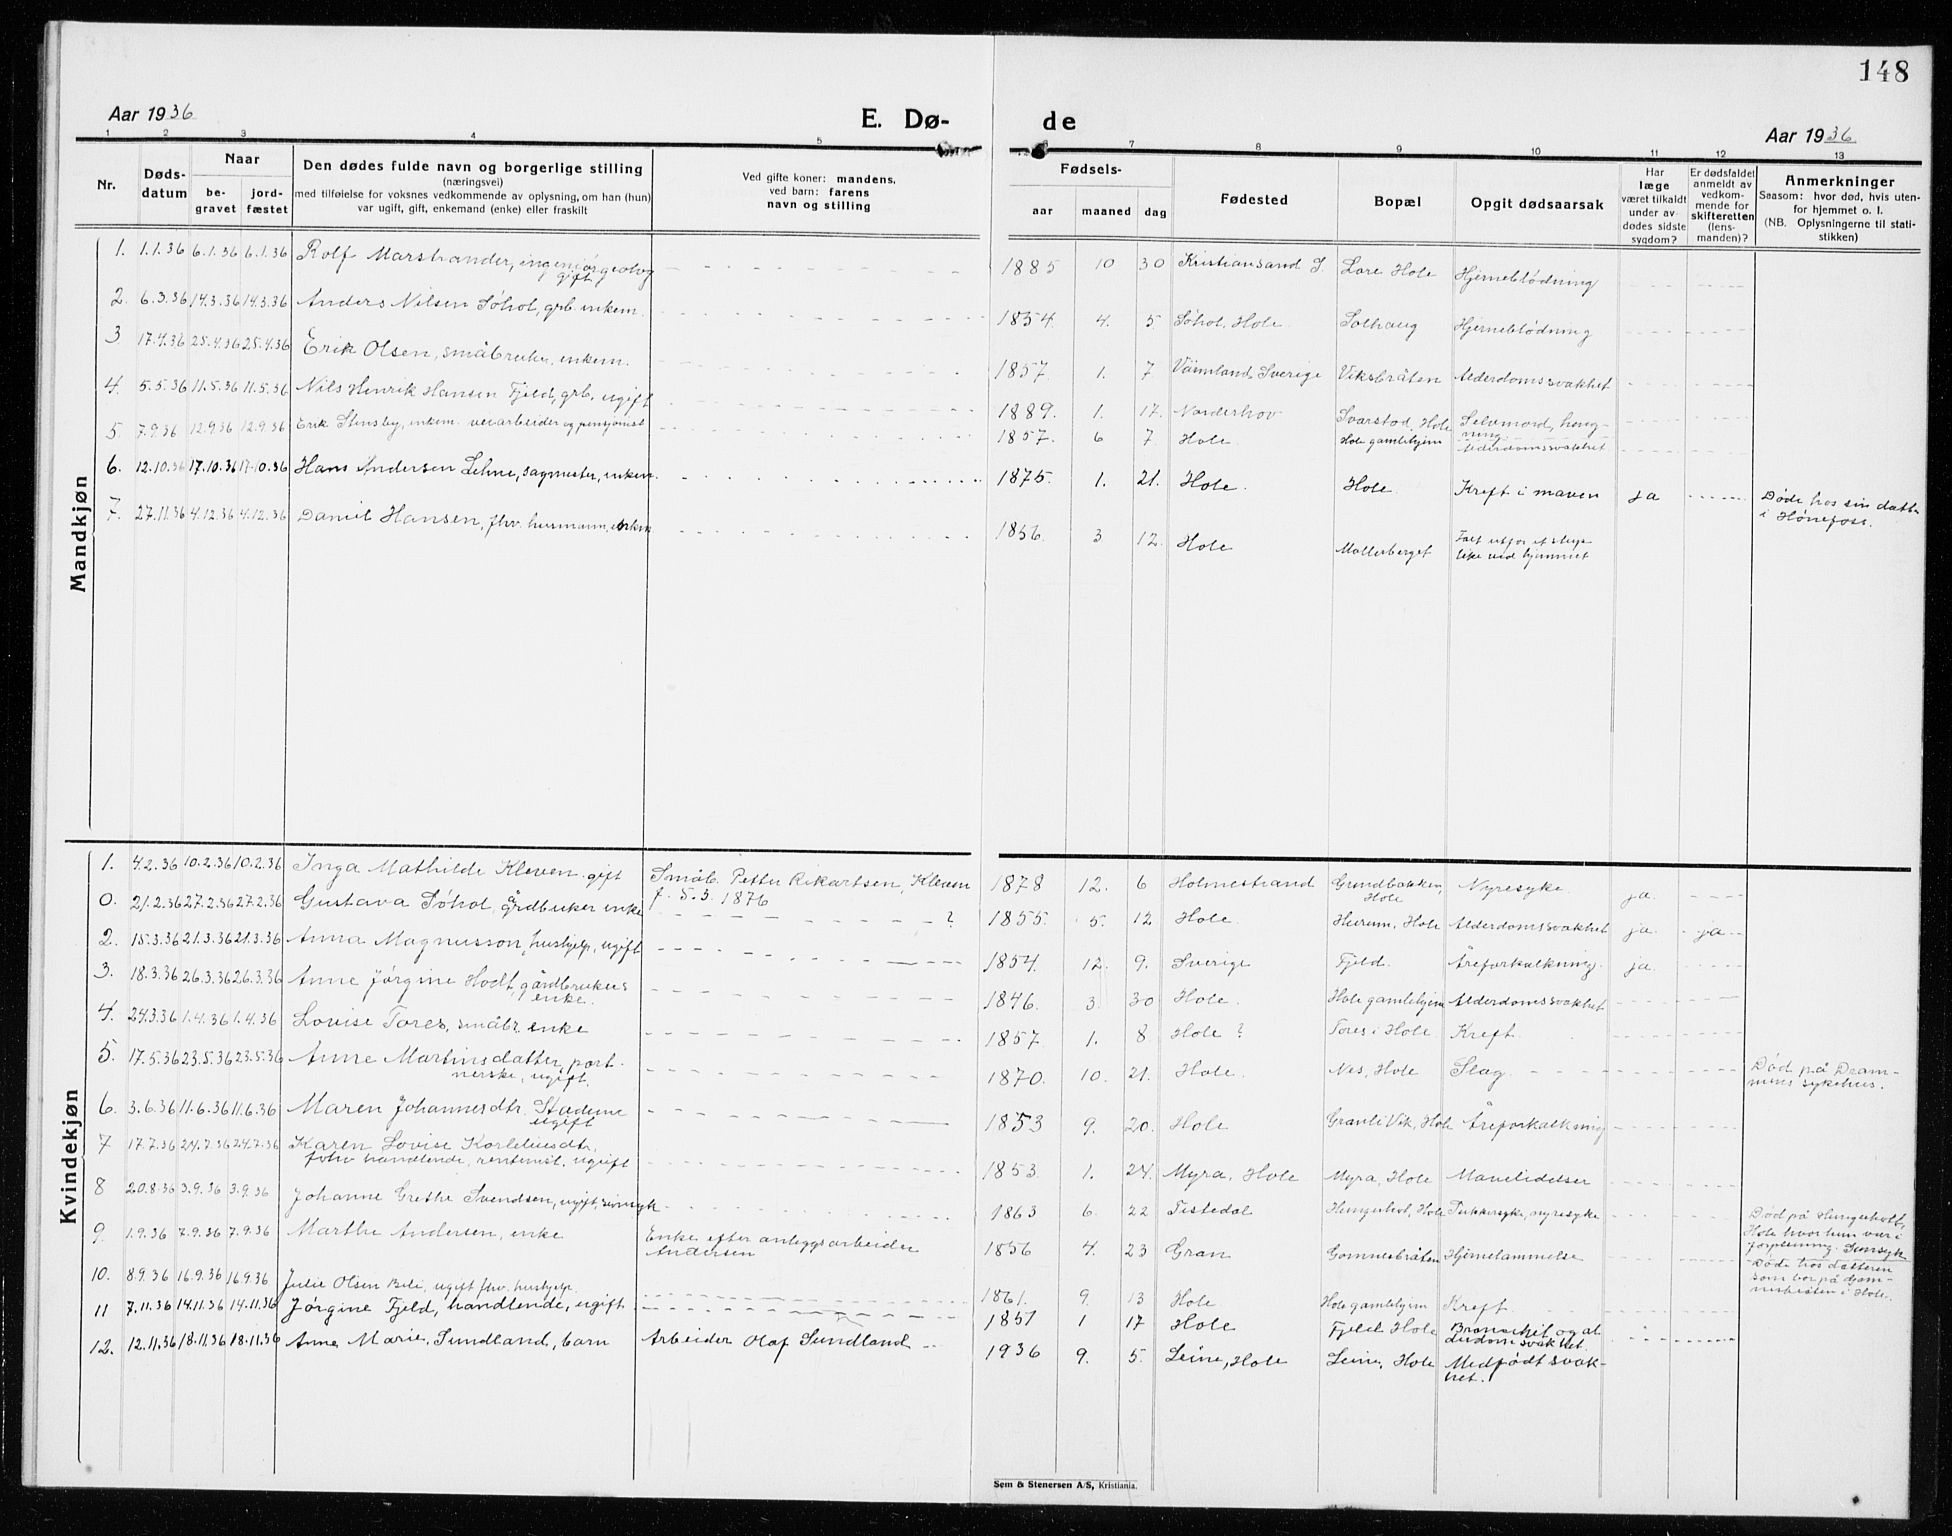 148
Aar 1936
E. Dø-
de
Aar 1936
1 2 3 4 5 6 7 8 9 10 11 12 13
Nr.
Døds-
datum
Naar
be-
gravet
jord-
fæstet
Den dødes fulde navn og borgerlige stilling
(næringsvei)
med tilføielse for voksnes vedkommende av oplysning, om han (hun)
var ugift, gift, enkemand (enke) eller fraskilt
Ved gifte koner: mandens,
ved barn: farens
navn og stilling
Fødsels-
aar maaned dag
Fødested
Bopæl
Opgit dødsaarsak
Har
læge
været tilkaldt
under av-
dødes sidste
sygdom?
Er dødsfaldet
anmeldt av
vedkom-
mende for
skifteretten
(lens-
manden)?
Anmerkninger
Saasom: hvor død, hvis uten-
for hjemmet o. l.
(NB. Oplysningerne til stati-
stikken)
Mandkjøn
1. 1.1.36 6.1.36 6.1.36 Rolf Marstrander, ingeniør geolog
gift
1885 10 30 Kristiansand S. Lore Hole Hjerneblødning
2. 6.3.36 14.3.36 14.3.36 Anders Nilsen Søhol, grb. enkem.
1854 4. 5 Søhol, Hole Solhaug Hjerneblødning
3 17.4.36 25.4.36 25.4.36 Erik Olsen, småbruker, enkem.
1857 1. 7 Värmland, Sverige Viksbråten Alderdomssvakhet
4. 5.5.36 11.5.36 11.5.36 Nils Henrik Hansen Fjeld, grb. ugift
1889. 1. 17. Norderhov Svarstad, Hole Selvmord, heng-
ning
5. 7.9.36 12.9.36 12.9.36 Erik Stensby, enkem. veiarbeider og pensjonist
1857. 6 7 Hole Hole gamlehjem Alderdomssvakhet
6. 12.10.36 17.10.36 17.10.36 Hans Andersen Lehne, sagmester, enkem.
1875. 1. 21. Hole. Hole. Kreft i maven ja
Døde hos sin datter
i Hønefoss.
7. 27.11.36 4.12.36 4.12.36 Daniel Hansen, fhv. husmann, enkem
1856. 3 12. Hole Mollerberget Falt utfor et
like ved hjemmet
Kvindekjøn
1. 4.2.36 10.2.36 10.2.36 Inga Mathilde Kleven. gift Småb. Petter Rikartsen, Kleven
f. 5.3.1876
1878 12. 6 Holmestrand Grundbakken,
Hole Nyresyke ja
0. 21.2.36 27.2.36 27.2.36 Gustava Søhol, gårdbruker enke ?
1855. 5. 12 Hole. Hurum, Hole Alderdomssvakhet ja ja
2. 15.3.36 21.3.36 21.3.36 Anna Magnusson, hushjelp, ugift
1854. 12. 9. Sverige Fjeld. Åreforkalkning. ja
3. 18.3.36 26.3.36 26.3.36 Anne Jørgine Hodt, gårdbrukers
enke.
1846. 3. 30 Hole. Hole gamlehjem Alderdomssvakhet
4. 24.3.36 1.4.36 1.4.36 Lovise Tores, småbr. enke
1857. 1. 8 Hole ? Tores i Hole Kreft
5. 17.5.36 23.5.36 23.5.36 Anne Martinsdatter, port-
nerske, ugift.
1870. 10. 21. Hole. Nes, Hole Slag
Død på Dram-
mens sykehus.
6. 3.6.36 11.6.36 11.6.36 Maren Johannesdtr.
ugift
1853 9. 20. Hole Granli Vik, Hole Åreforkalkning
7 17.7.36 24.7.36 24.7.36 Karen Lovise Korleliusdtr.
fohv handlende, rentenist. ugift
1853. 1. 24. Myra, Hole Myra, Hole Mavelidelser
8 20.8.36 3.9.36 3.9.36 Johanne Grethe Svendsen, ugift, sinnsyk
1863 6. 22 Tistedal Hungerhol, Hole Sukkersyke, nyresyke
Død på Hungerholt,
Hole hvor hun var i
forpleining. Sinnsyk
9. 1.9.36 7.9.36 7.9.36 Marthe Andersen, enke Enke efter anleggsarbeider
Andersen
1856 4. 23 Gran Gomnesbråten Hjernelammelse
Døde hos datteren
som bor på Gom-
nesbråten i Hole.
10. 8.9.36 16.9.36 16.9.36 Julie Olsen Bili, ugift fhv. hushjelp
1861. 9. 13 Hole Hole gamlehjem Kreft
11 7.11.36 14.11.36 14.11.36 Jørgine Fjeld, handlende, ugift
1851 1 17 Hole Fjeld Hole Bronschit og al-
derdomssvakhet.
12. 12.11.36 18.11.36 18.11.36 Anne Marie Sundland, barn Arbeider Olaf Sundland
1936 9. 5. Leine, Hole Leine, Hole Medfødt svak-
het.
Sem & Stenersen A/S, Kristiania.